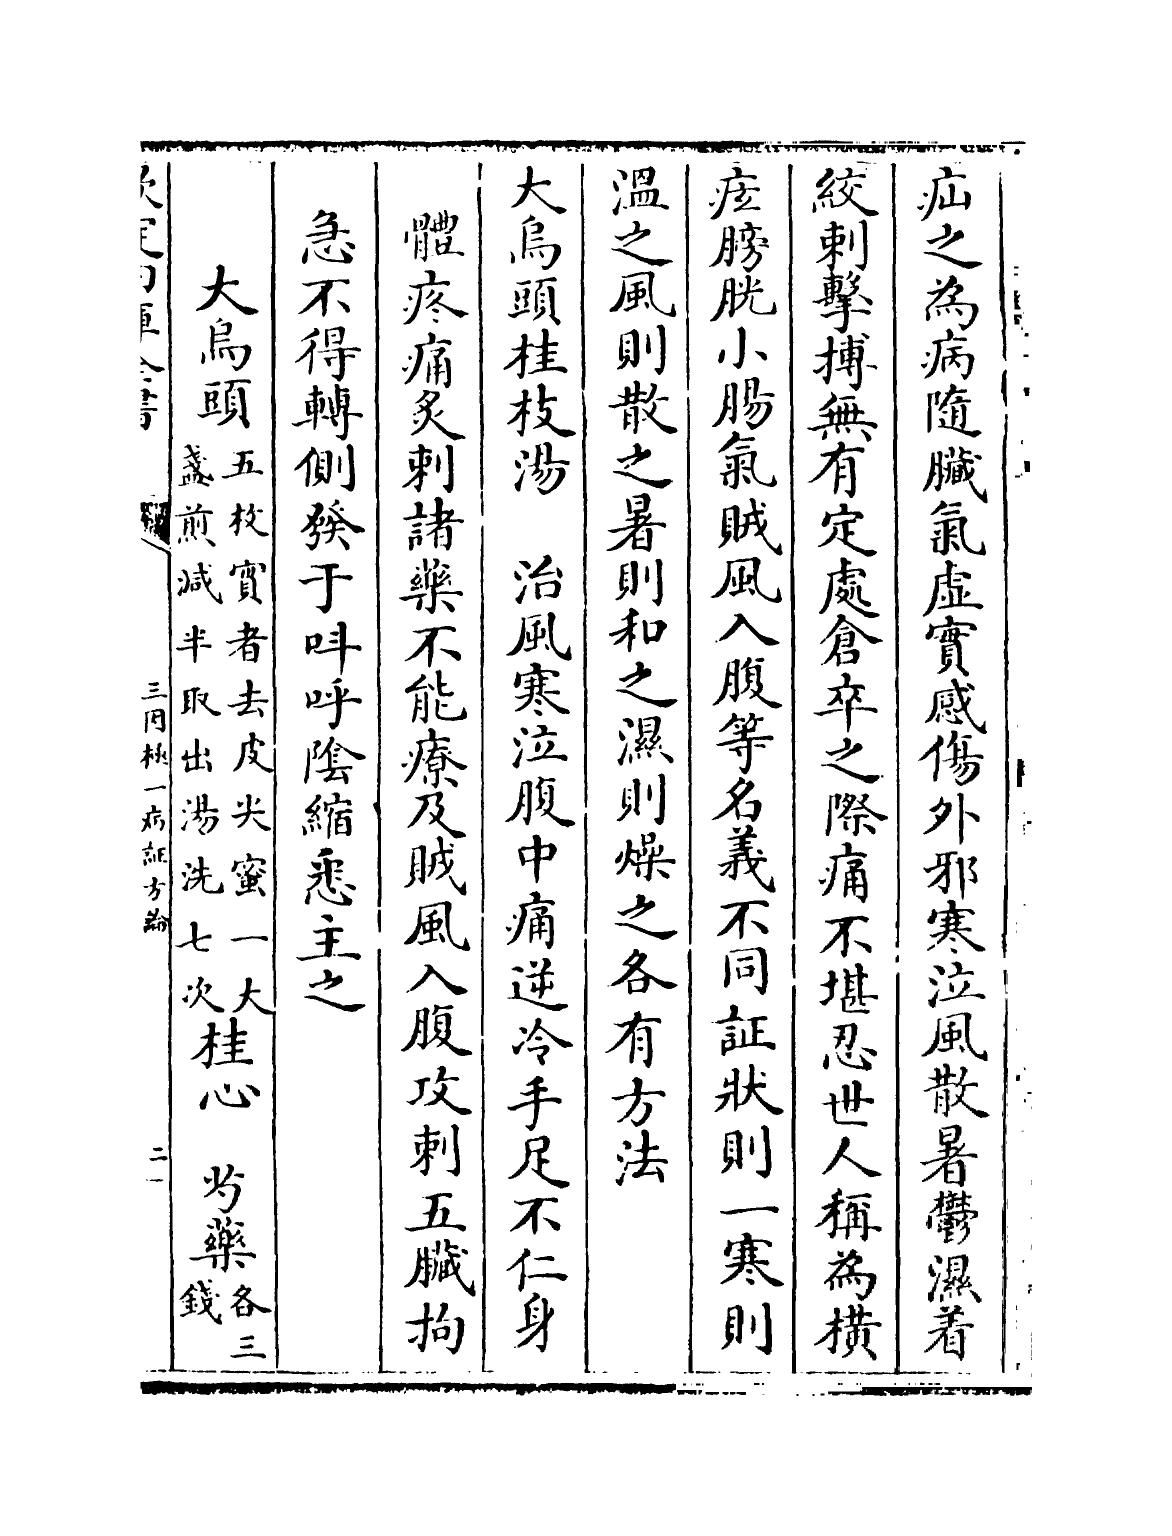 疝之為病隨臟氣虛實感傷外邪寒泣風散暑鬱濕着
絞刺擊搏無有定處倉卒之際痛不堪忍世人稱為横
痃膀胱小腸氣賊風入腹等名義不同証狀則一寒則
溫之風則散之暑則和之濕則燥之各有方法
大烏頭桂枝湯　治風寒泣腹中痛逆冷手足不仁身
體疼痛炙刺諸藥不能療及賊風入腹攻刺五臟拘
急不得轉側發于呌呼隂縮悉主之
大烏頭五枚實者去皮尖蜜一大盞煎減半取出湯洗七次桂心　芍藥各三錢
欽定四庫全書
三因極一病証方論
二